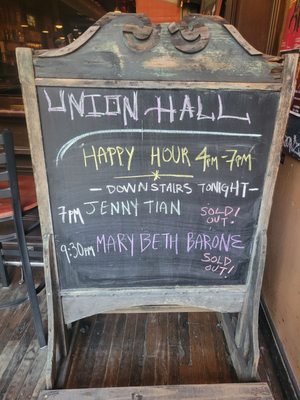 UNION HALL
HAPPY HOUR 4PM-7PM
- DOWNSTAIRS TONIGHT -
7PM JENNY TIAN SOLD! OUT
9:30PM MARY BETH BARONE
SOLD OUT!